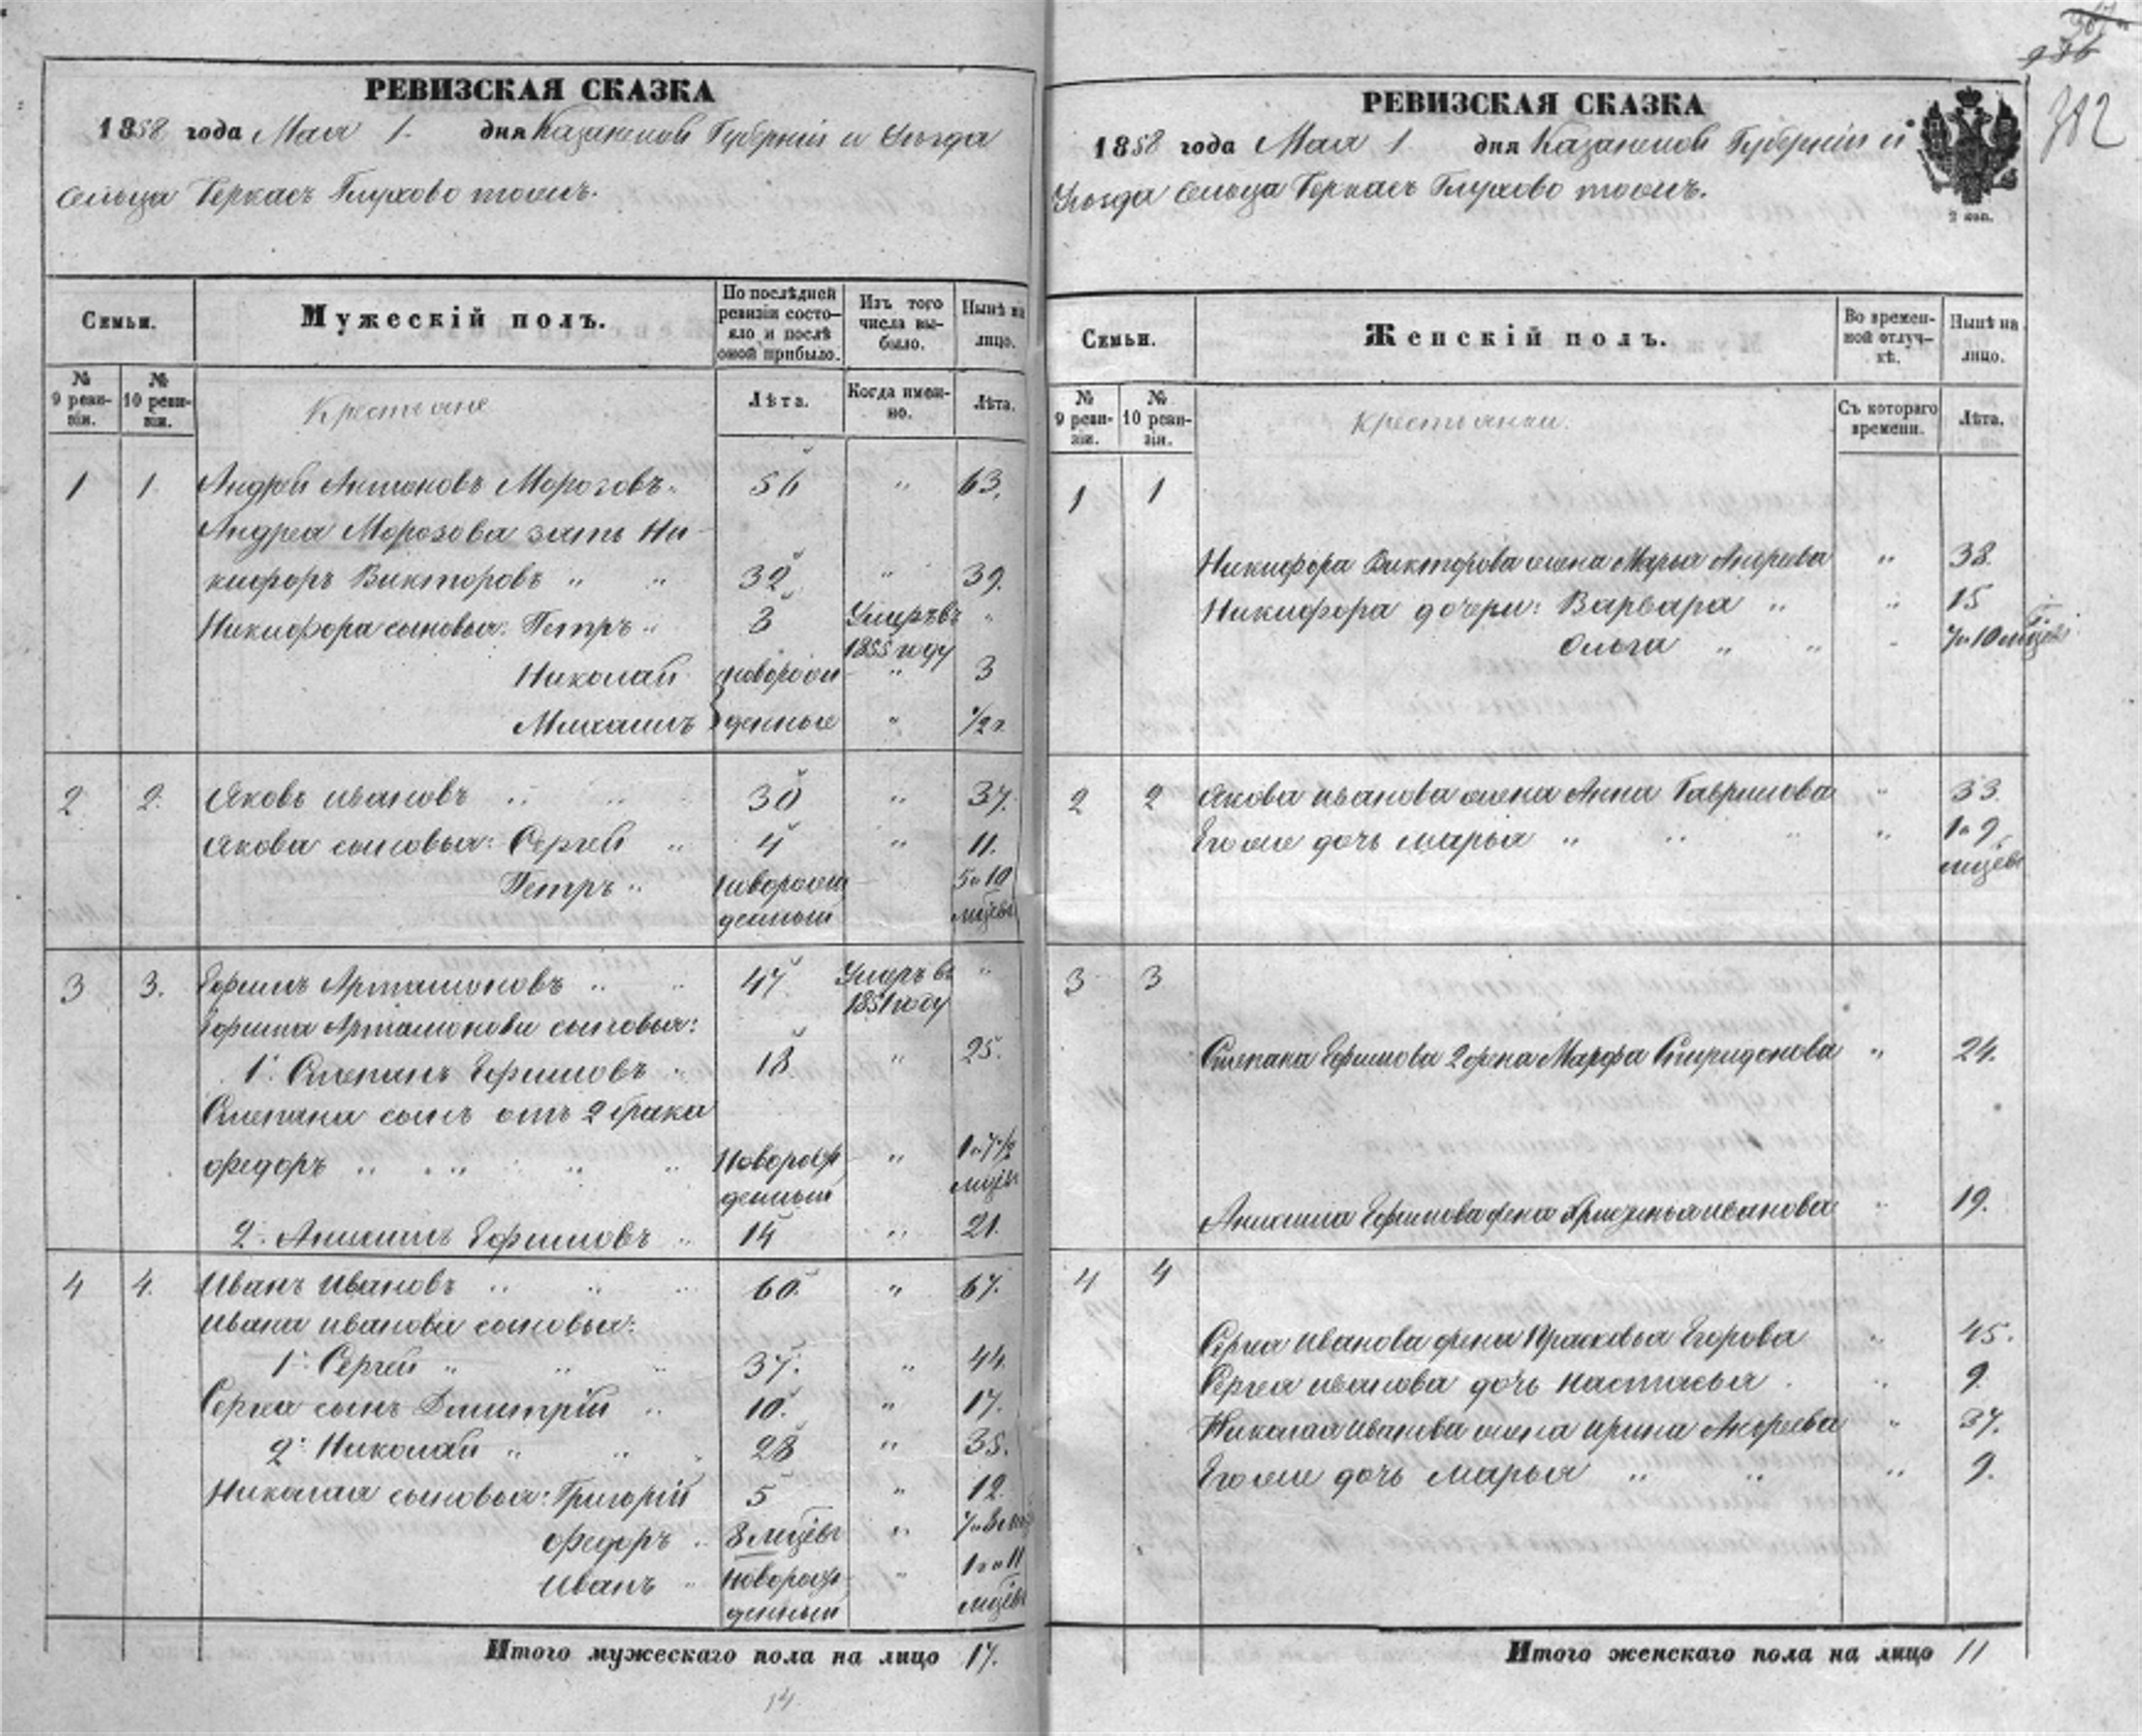 РЕВИЗСКАЯ СКАЗКА
1858 года Мая 1. дня Казанской Губерніи и Уѣзда
Сельца Черкасъ Глухово тожъ.
Семьи.
Мужескій полъ.
По послѣдней ревизіи состояло и послѣ оной прибыло.
Изъ того числа выбыло.
Нынѣ на лицо.
№ 9 ревизіи.
№ 10 ревизіи.
Крестьяне
Лѣта.
Когда именно.
Лѣта.
1 1. Андрей Антоновъ Морозовъ 56 " 63.
Андрея Морозова зять Ни-
кифоръ Викторовъ " " 32 " 39.
Никифора сыновья: Петръ " 3 Умеръ въ "
1855 году
Николай новорож " 3
Михаилъ денные " 1/2 г
2 2. Яковъ Ивановъ " " 30 " 37.
Якова сыновья: Сергей " 4 " 11.
Петръ " новорож 5 и 10
денный мцевъ
3 3. Ефимъ Артамоновъ " " 47 Умеръ въ "
1851 году
Ефима Артамонова сыновья:
1. Степанъ Ефимовъ " 18 " 25.
Степана сынъ отъ 2 брака
Федоръ " " " " Новорож " 1 и 7 1/2
денный мцевъ
2. Анисимъ Ефимовъ " 14 " 21.
4 4. Иванъ Ивановъ " " 60. " 67.
Ивана Иванова сыновья:
1. Сергей " " " 37. " 44.
Сергея сынъ Дмитрій " 10. " 17.
2. Николай " " 28 " 35.
Николая сыновья: Григорій 5 " 12.
Федоръ " 8 мцевъ "
Иванъ " новорож " 1 г и 11
денный мцевъ
Итого мужескаго пола на лицо 17.
РЕВИЗСКАЯ СКАЗКА
1858 года Мая 1 дня Казанской Губерніи и
Уѣзда Сельца Черкасъ Глухово тожъ.
2 коп.
382
Семьи.
Женскій полъ.
Во временной отлучкѣ.
Нынѣ на лицо.
№ 9 ревизіи.
№ 10 ревизіи.
Крестьянки.
Съ котораго времени.
Лѣта.
1 1
Никифора Викторова жена Марья Андреева " 38.
Никифора дочери: Варвара " " 15
Ольга " " " 7 и 10 мцевъ
2 2 Якова Иванова жена Анна Гаврилова " 33.
Его же дочь Марья " " " " 1 и 9
мцевъ
3 3
Степана Ефимова 2 жена Марфа Спиридонова " 24.
Анисима Ефимова жена Иванова " 19.
4 4
Сергея Иванова жена Прасковья Егорова " 45.
Сергея Иванова дочь Настасья " 9.
Николая Иванова жена Ирина Андреева " 37.
Его же дочь Марья " " " 9.
Итого женскаго пола на лицо 11